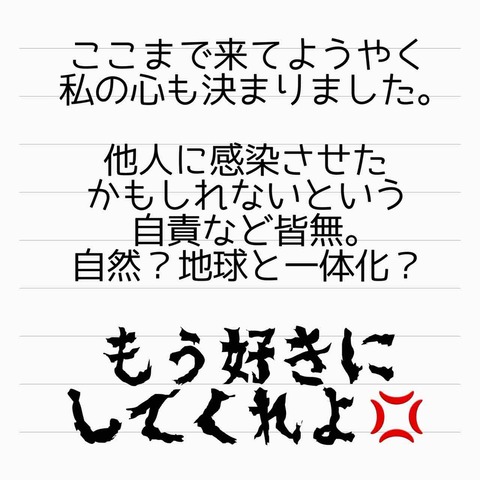 ここまで来てようやく
私の心も決まりました。
他人に感染させた
かもしれないという
自責など皆無。
自然？地球と一体化？
もう好きに
してくれよ💢